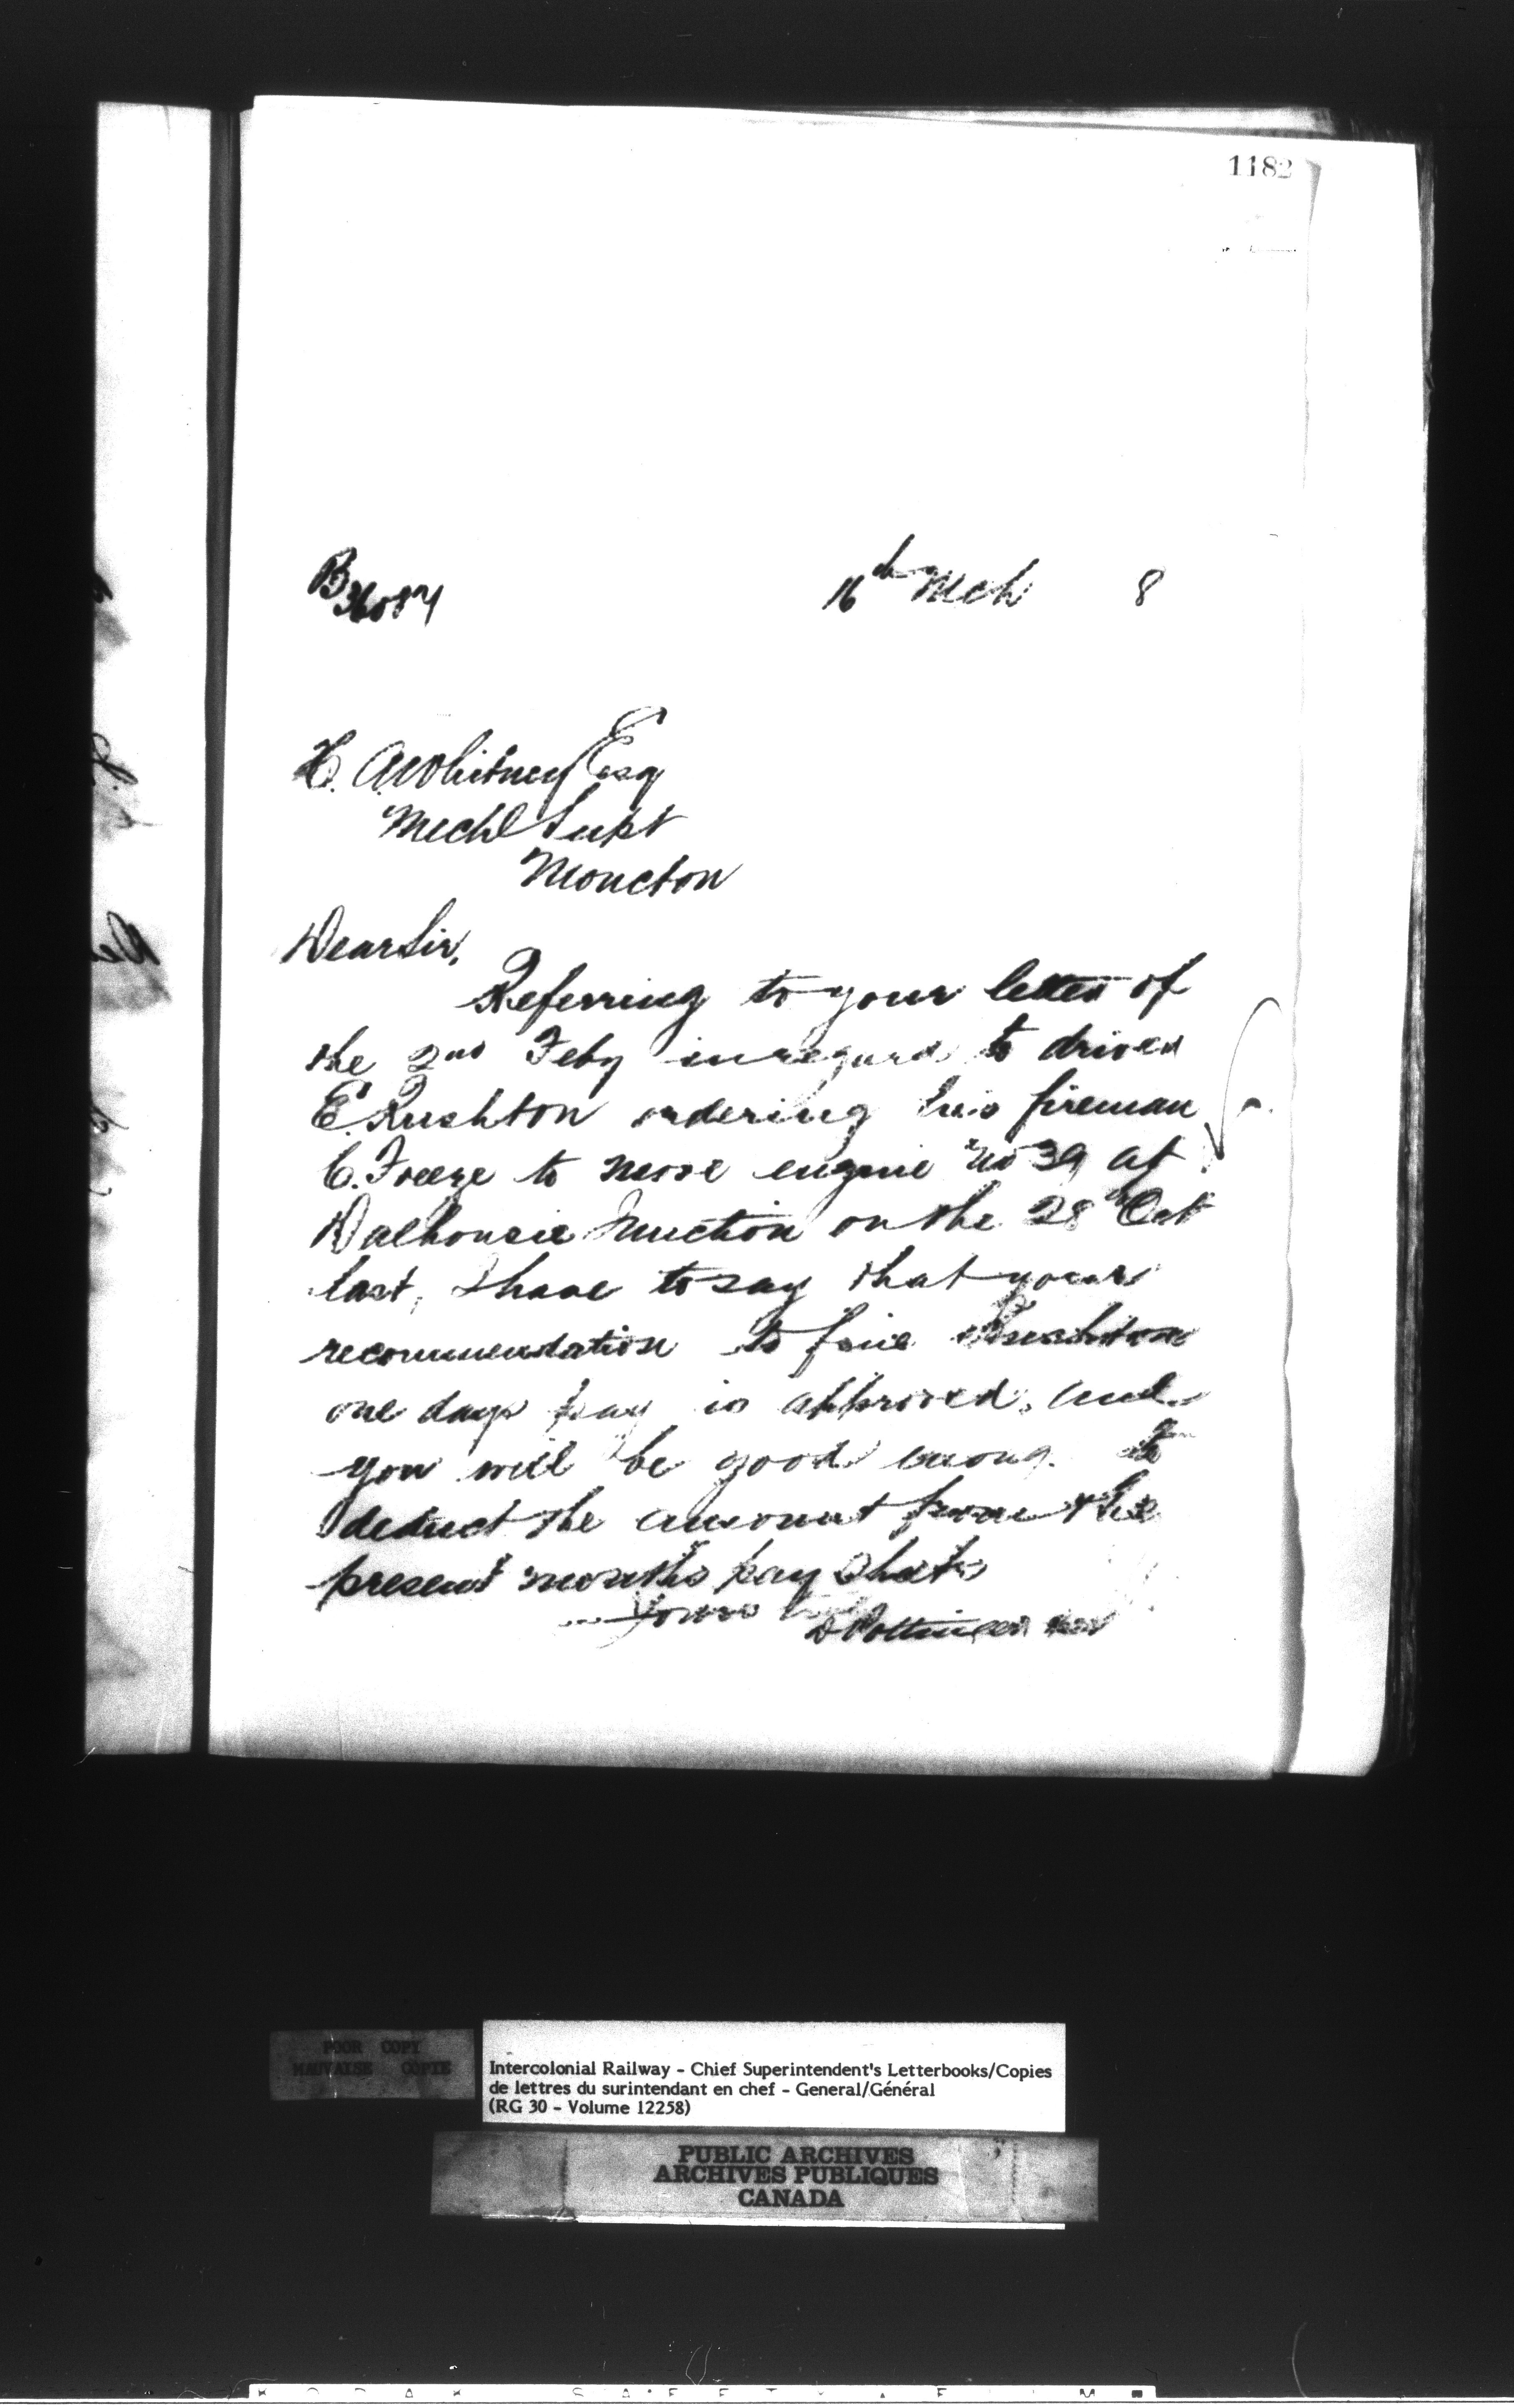 1182
B 36087
16th Mch 8
H. A. Whitney Esq
Mechl Supt
Moncton
Dear Sir,
Referring to your letter of
the 2nd Feby in regard to driver
E. Rushton ordering his fireman
C. Freeze to move engine No 39 at
Dalhousie Junction on the 28th Oct
last, I have to say that your
recommendation to fine Rushton
one days pay is approved, and
you will be good enoug to
deduct the amount from the
present months pay sheets
Yours
D Pottinger
POOR COPY
MAUVAISE COPIE
Intercolonial Railway - Chief Superintendent's Letterbooks/Copies
de lettres du surintendant en chef - General/Général
(RG 30 - Volume 12258)
PUBLIC ARCHIVES
ARCHIVES PUBLIQUES
CANADA
KODAK SAFETY FILM